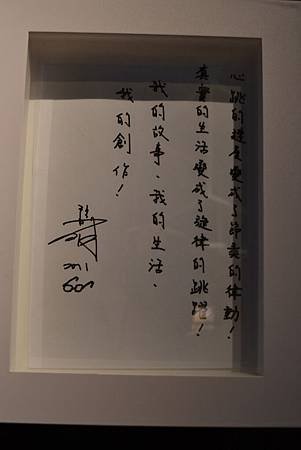 心跳的速度變成了節奏的律動!
真實的生活變成了旋律的跳躍!
我的故事、我的生活、
我的創作!